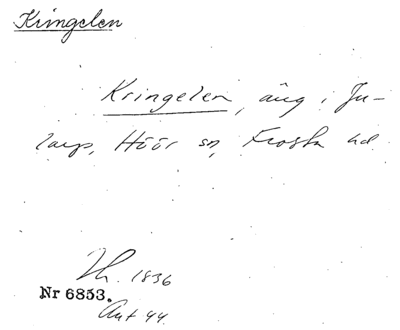 Kringelen
Kringelen, äng i Ju-
larp, Höör sn, Frosta hd
Lh. 1836
Nr 6853.
Ant 44